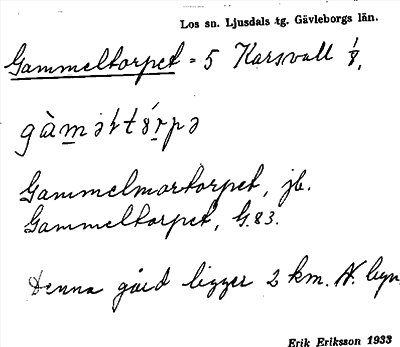 Los sn. Ljusdals tg. Gävleborgs län.
Gammeltorpet = 5 Karsvall 1/8,
gàmǝltórpǝ
Gammelmortorpet, jb.
Gammeltorpet, G.83.
Denna gård ligger 2 km. N. byn
Erik Eriksson 1933